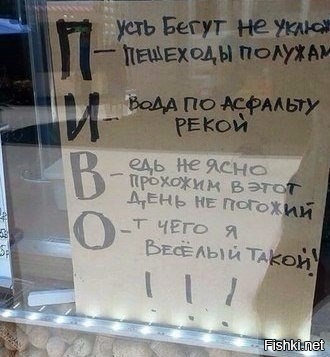 П - усть бегут не уклюж
пешеходы по лужам
И - вода по асфальту
рекой
В - едь не ясно
прохожим в этот
день не погожий
О - т чего я
весёлый такой!
!!!
Fishki.net